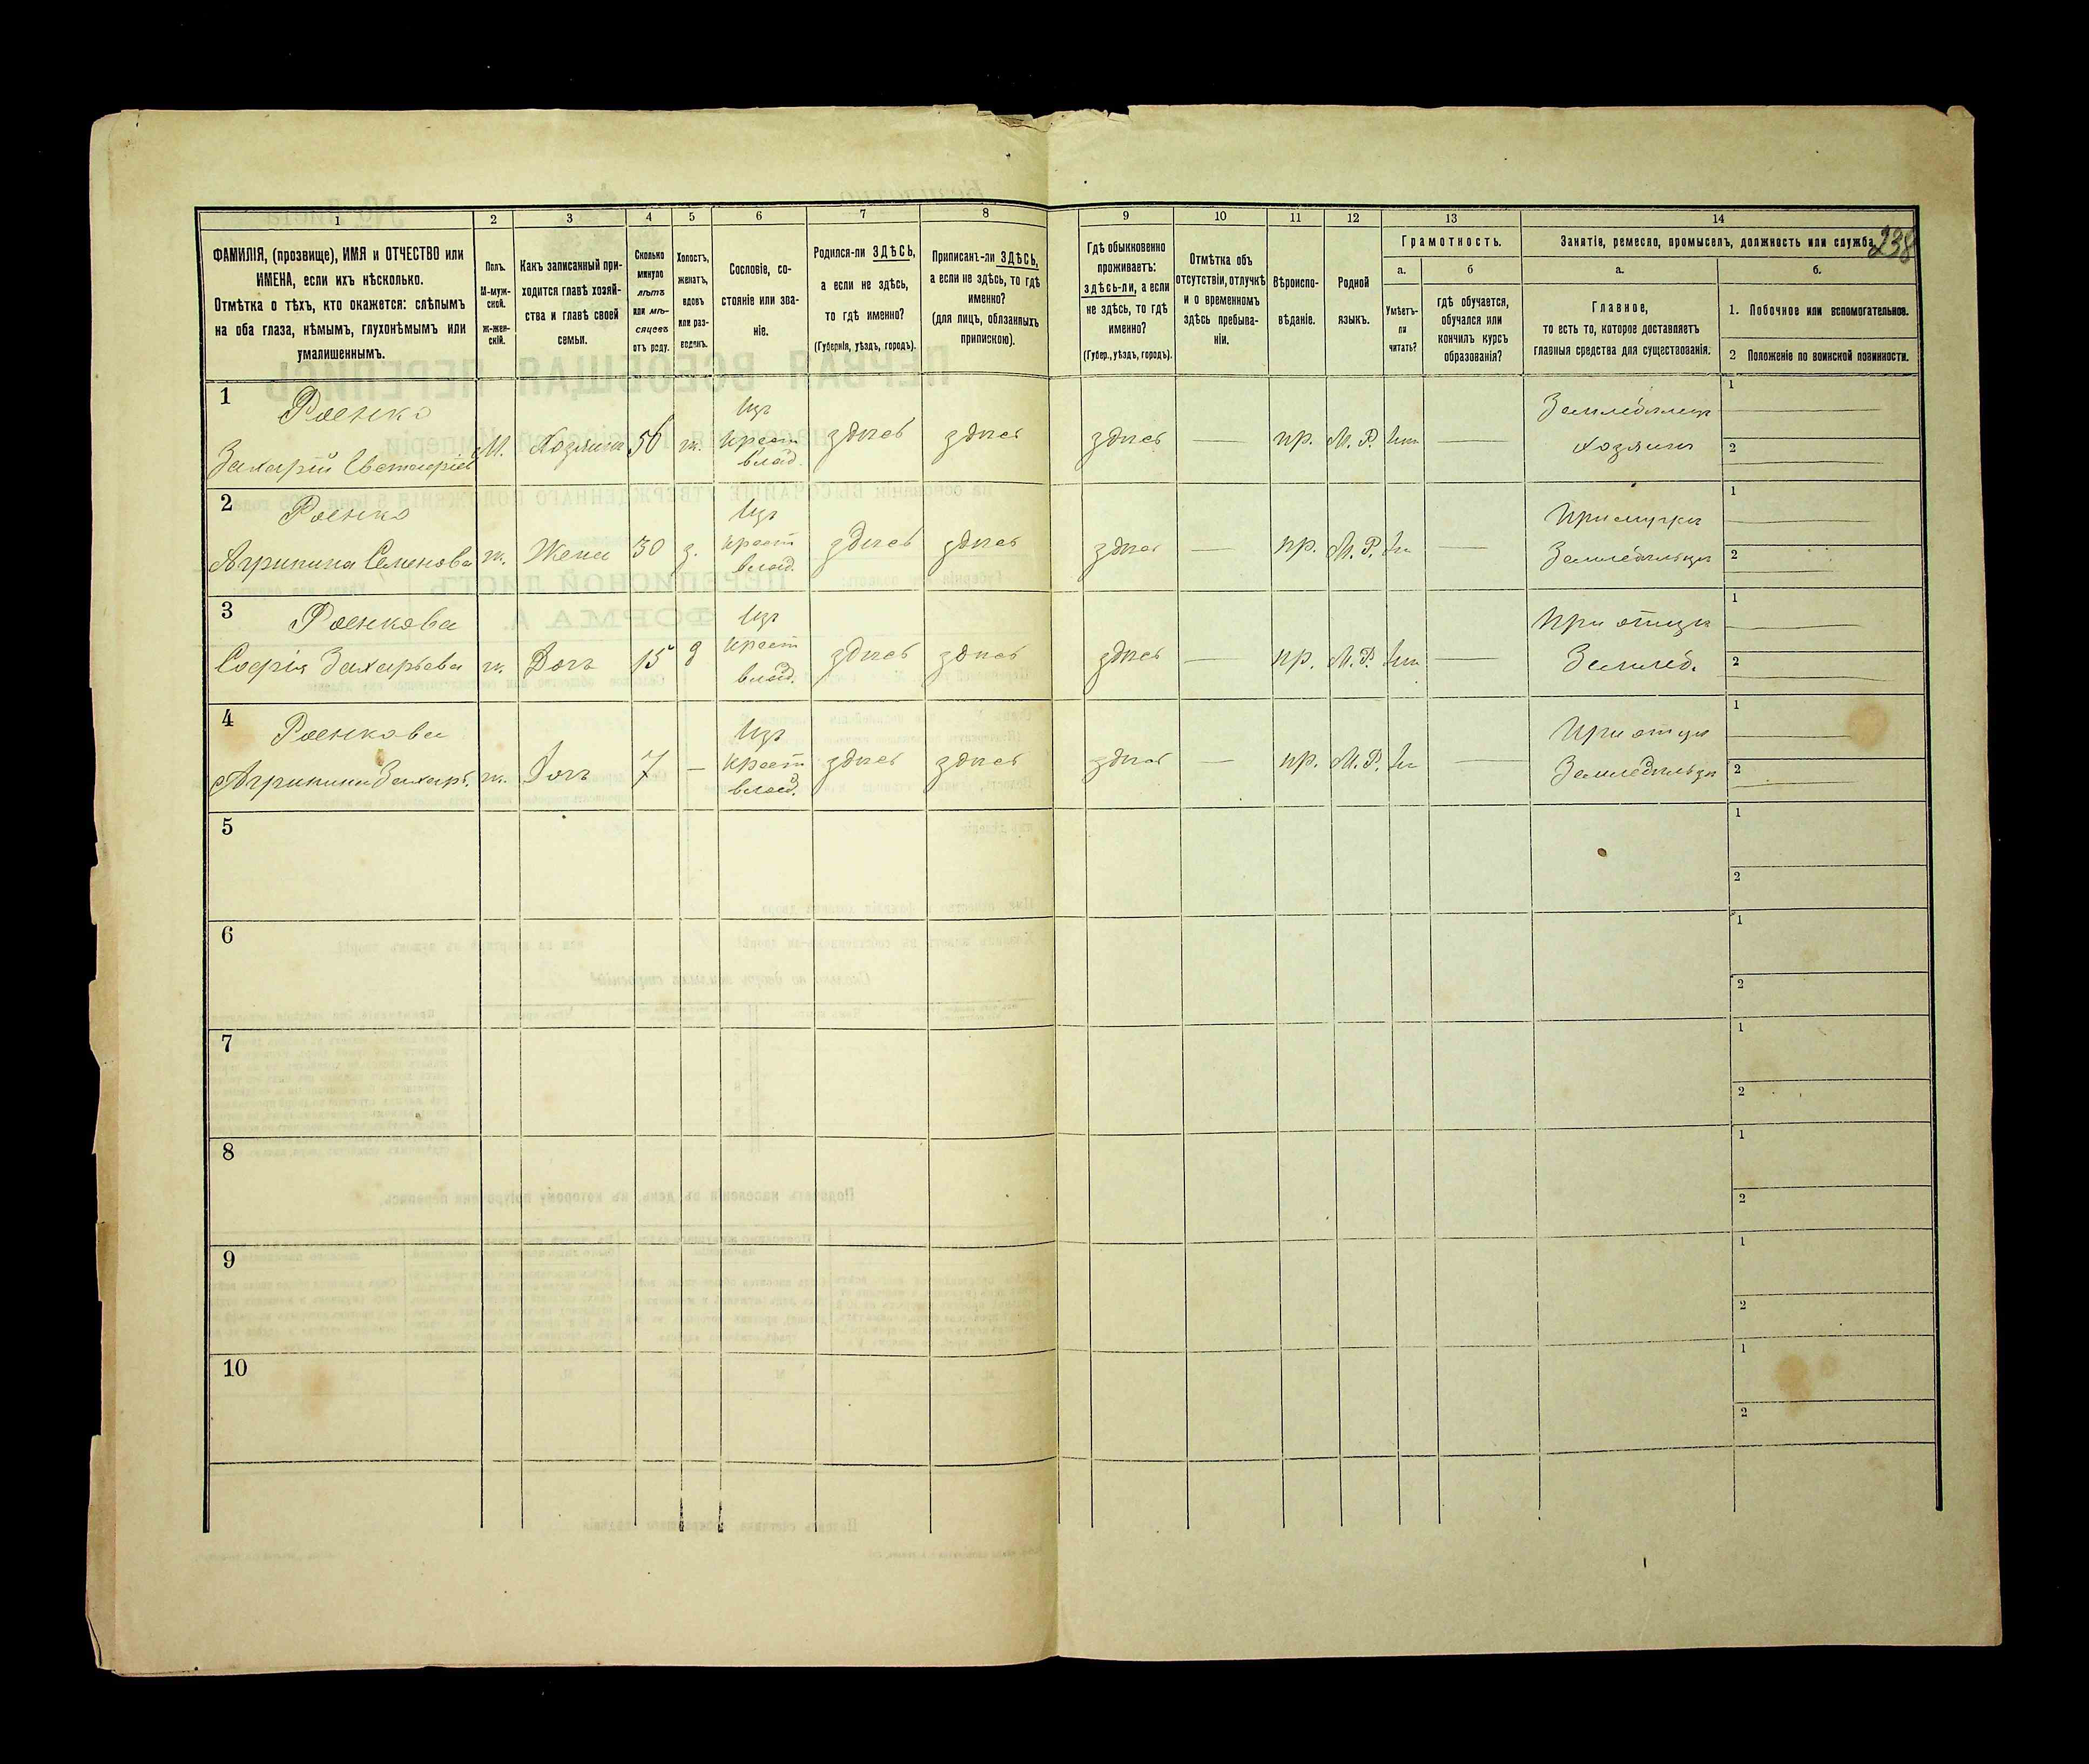 238
1 2 3 4 5 6 7 8 9 10 11 12 13 14
ФАМИЛІЯ, (прозвище), ИМЯ и ОТЧЕСТВО или
ИМЕНА, если ихъ нѣсколько.
Отмѣтка о тѣхъ, кто окажется: слѣпымъ
на оба глаза, нѣмымъ, глухонѣмымъ или
умалишеннымъ.
Полъ.
М-муж-
ской.
Ж-жен-
скій.
Какъ записанный при-
ходится главѣ хозяй-
ства и главѣ своей
семьи.
Сколько
минуло
лѣтъ
или мѣ-
сяцевъ
отъ роду.
Холостъ,
женатъ,
вдовъ
или раз-
веденъ.
Сословіе, со-
стояніе или зва-
ніе.
Родился-ли ЗДѢСЬ,
а если не здѣсь,
то гдѣ именно?
(Губернія, уѣздъ, городъ).
Приписанъ-ли ЗДѢСЬ,
а если не здѣсь, то гдѣ
именно?
(для лицъ, обязанныхъ
припискою).
Гдѣ обыкновенно
проживаетъ:
здѣсь-ли, а если
не здѣсь, то гдѣ
именно?
(Губер., уѣздъ, городъ).
Отмѣтка объ
отсутствіи, отлучкѣ
и о временномъ
здѣсь пребыва-
ніи.
Вѣроиспо-
вѣданіе.
Родной
языкъ.
Грамотность.
а.
Умѣетъ-
ли
читать?
б
гдѣ обучается,
обучался или
кончилъ курсъ
образованія?
Занятіе, ремесло, промыселъ, должность или служба.
а.
Главное,
то есть то, которое доставляетъ
главныя средства для существованія.
б.
1. Побочное или вспомогательное.
2 Положеніе по воинской повинности.
1
Роенко
Захарій
М. Хозяинъ 56 ж.
Изъ
крест
влад.
здѣсь здѣсь здѣсь — пр. М. Р. —
Земледѣлецъ
хозяинъ
1
2
2
Роенко
Агрипина Семенова
ж. Жена 30 з.
Изъ
крест
влад.
здѣсь здѣсь здѣсь — пр. М. Р. —
При мужѣ
Земледѣльцѣ
1
2
3
Роенкова
Софія Захарьева
ж. Дочь 15 д
Изъ
крест
влад.
здѣсь здѣсь здѣсь — пр. М. Р. —
При отцѣ
Землед.
1
2
4
Роенкова
Агрипина Захарь.
ж. Дочь 7 —
Изъ
крест
влад.
здѣсь здѣсь здѣсь — пр. М. Р. —
При отцѣ
Земледѣльцѣ
1
2
5
1
2
6
1
2
7
1
2
8
1
2
9
1
2
10
1
2